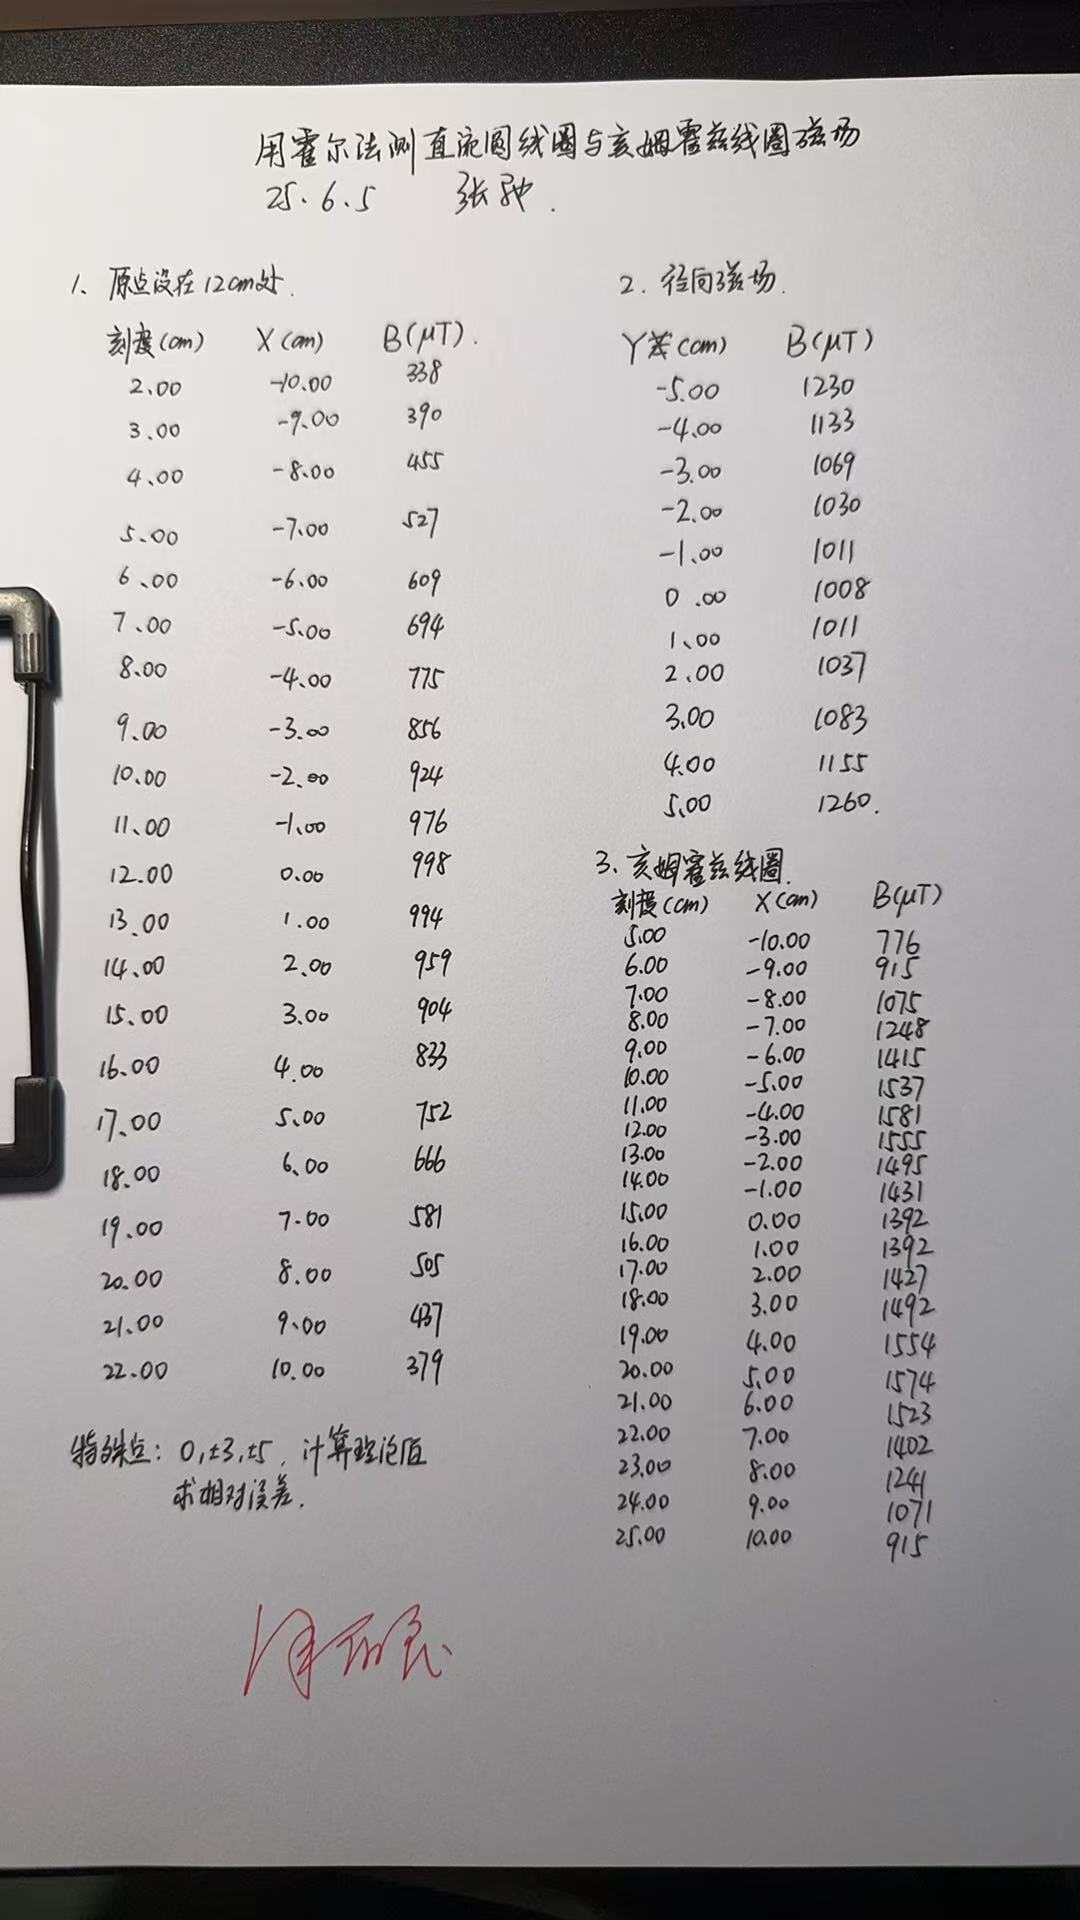 用霍尔法测直流圆线圈与亥姆霍兹线圈磁场
25.6.5 张
1、原点设在12cm处.
刻度(cm) X(cm) B(μT).
2.00 -10.00 338
3.00 -9.00 390
4.00 -8.00 455
5.00 -7.00 527
6.00 -6.00 609
7.00 -5.00 694
8.00 -4.00 775
9.00 -3.00 856
10.00 -2.00 924
11.00 -1.00 976
12.00 0.00 998
13.00 1.00 994
14.00 2.00 959
15.00 3.00 904
16.00 4.00 833
17.00 5.00 752
18.00 6.00 666
19.00 7.00 581
20.00 8.00 505
21.00 9.00 437
22.00 10.00 379
特殊点: 0,±3,±5, 计算理论值
求相对误差.
2. 径向磁场.
Y (cm) B(μT)
-5.00 1230
-4.00 1133
-3.00 1069
-2.00 1030
-1.00 1011
0.00 1008
1.00 1011
2.00 1037
3.00 1083
4.00 1155
5.00 1260.
3、亥姆霍兹线圈.
刻度(cm) X(cm) B(μT)
5.00 -10.00 776
6.00 -9.00 915
7.00 -8.00 1075
8.00 -7.00 1248
9.00 -6.00 1415
10.00 -5.00 1537
11.00 -4.00 1581
12.00 -3.00 1555
13.00 -2.00 1495
14.00 -1.00 1431
15.00 0.00 1392
16.00 1.00 1392
17.00 2.00 1427
18.00 3.00 1492
19.00 4.00 1554
20.00 5.00 1574
21.00 6.00 1523
22.00 7.00 1402
23.00 8.00 1241
24.00 9.00 1071
25.00 10.00 915